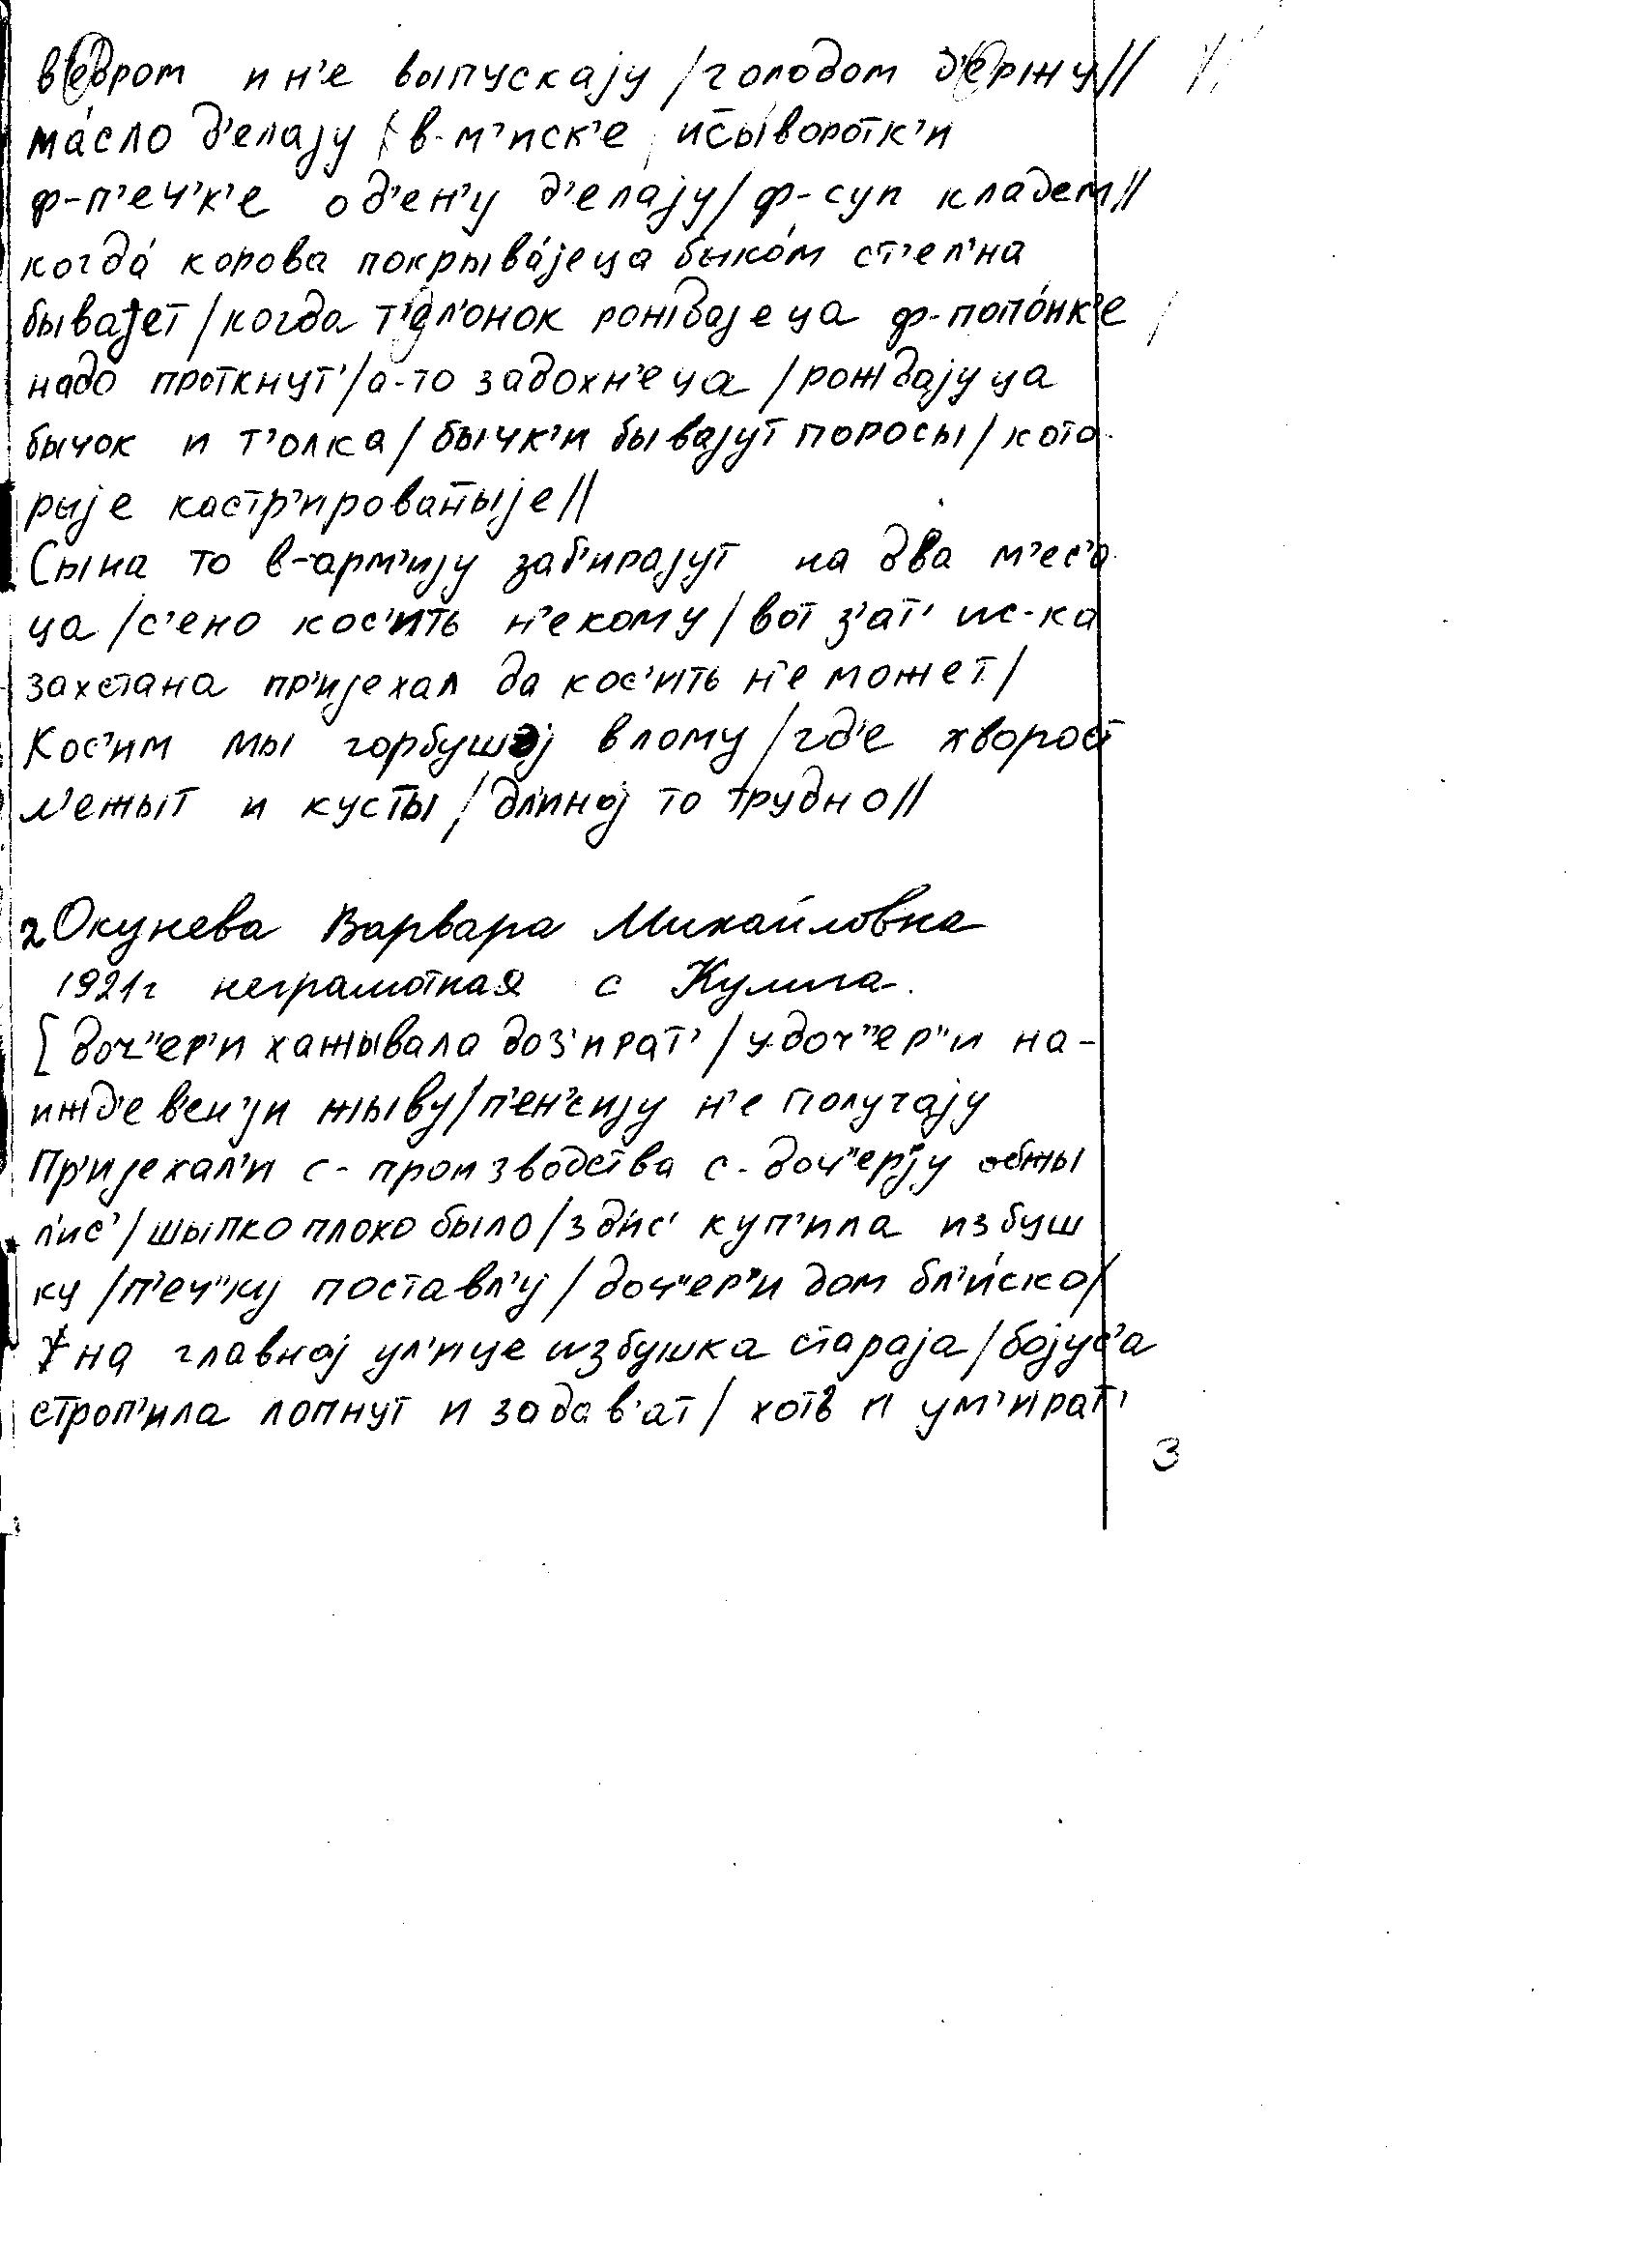 ведром и н'е выпускаjу / голодом д'ержу //
ма́сло д'елаjу / в-м'иск'е / ис̄ы́воротк'и
ф-п'еч'к'е од'ен'у д'елаjу / ф-суп кладем //
когда́ корова покрыва́jеца быко́м ст'ел'на
бываjет / когда т'ел'онок рождаjеца ф-попо́нк'е /
надо проткнут' / а-то задохн'еца / рождаjуца
бычок и т'олка / бычк'и бываjут поросы / кото-
рыjе кастр'ированыjе //
Сына то в-арм'иjу заб'ираjут на два м'ес'а
ца / с'ено кос'ить н'екому / вот з'ат' ис-ка
захстана пр'иjехал да кос'ить н'е может /
Кос'им мы горбушэj в лому / гд'е хворост
л'ежыт и кусты / дл'иноj то трудно //
2 Окунева Варвара Михайловна
1921г неграмотная с Кулига.
[ доч"ер'и хажывала доз'ират' / у-доч"ер"и на-
ижд'евен'jи жыву / п'ен'сиjу н'е получаjу
Пр'иjехал'и с-производства с-доч"ерjу обжы
л'ис' / шыпко плохо было / зд'ис' куп'ила избуш
ку / п'еч"ку поставл'у / доч"ер"и дом бл'и́ско /
на главноj ул'ице избушка стараjа / боjус'а
строп'ила лопнут и задав'ат / хотв и ум'ират'
3